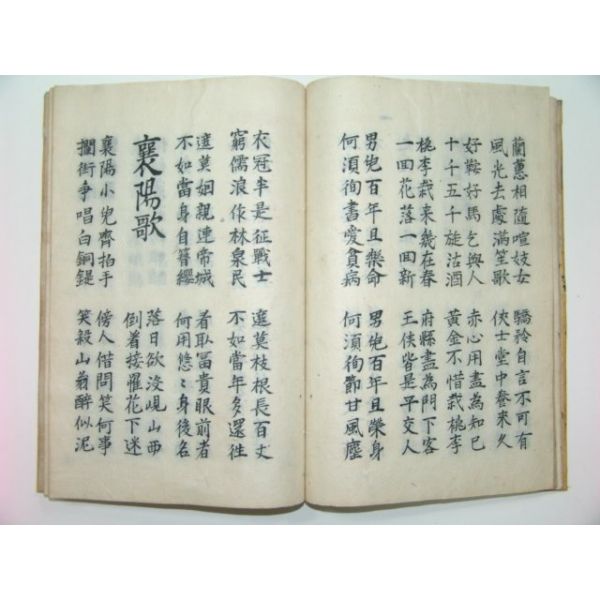 蘭蕙相隨喧妓女
風光去處滿笙歌
驕矜自言不可有
俠士堂中養來久
好鞍好馬乞與人
十千五千旋沽酒
赤心用盡為知已
黃金不惜栽桃李
桃李栽来幾在春
一囬花落一囬新
府縣盡為門下客
王侯皆是平交人
男兒百年且樂命
何湏徇書受貧病
男兒百年且榮身
何湏徇節甘風塵
衣冠半是征戰士
窮儒浪作林泉民
遮莫枝根長百丈
不如當年多還徃
遮莫姻親連帝城
不如當身自簪纓
看取冨貴眼前者
何用悠〻身後名
襄陽歌
落日欲沒峴山西
倒着接䍦花下迷
襄陽小兒齊拍手
攔街争唱白銅鍉
傍人借問笑何事
笑殺山翁醉似泥